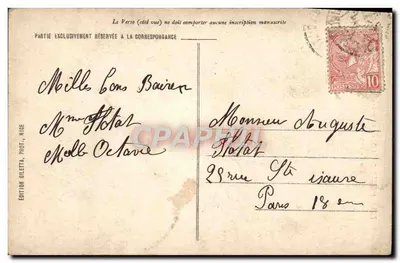 Le Verso (côté vue) ne doit comporter aucune inscription manuscrite
PARTIE EXCLUSIVEMENT RÉSERVÉE A LA CORRESPONDANCE
Milles bons Baisers
Mme Flotat
Melle Octavie
Monsieur Auguste
Flotat
25 rue Ste isaure
Paris 18 em
10
CPARAMA
EDITION GILETTA, PHOT., NICE